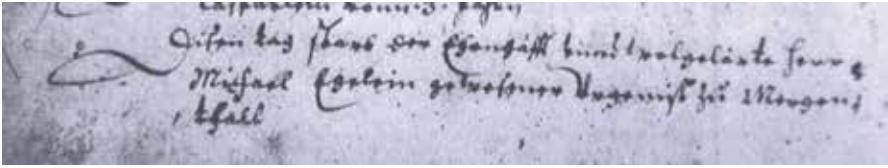 Disen tag starb der Ehrnhafft unnd wolgelärte Herr
Michael Egelein gewesener Organist zu Mergen,
thall